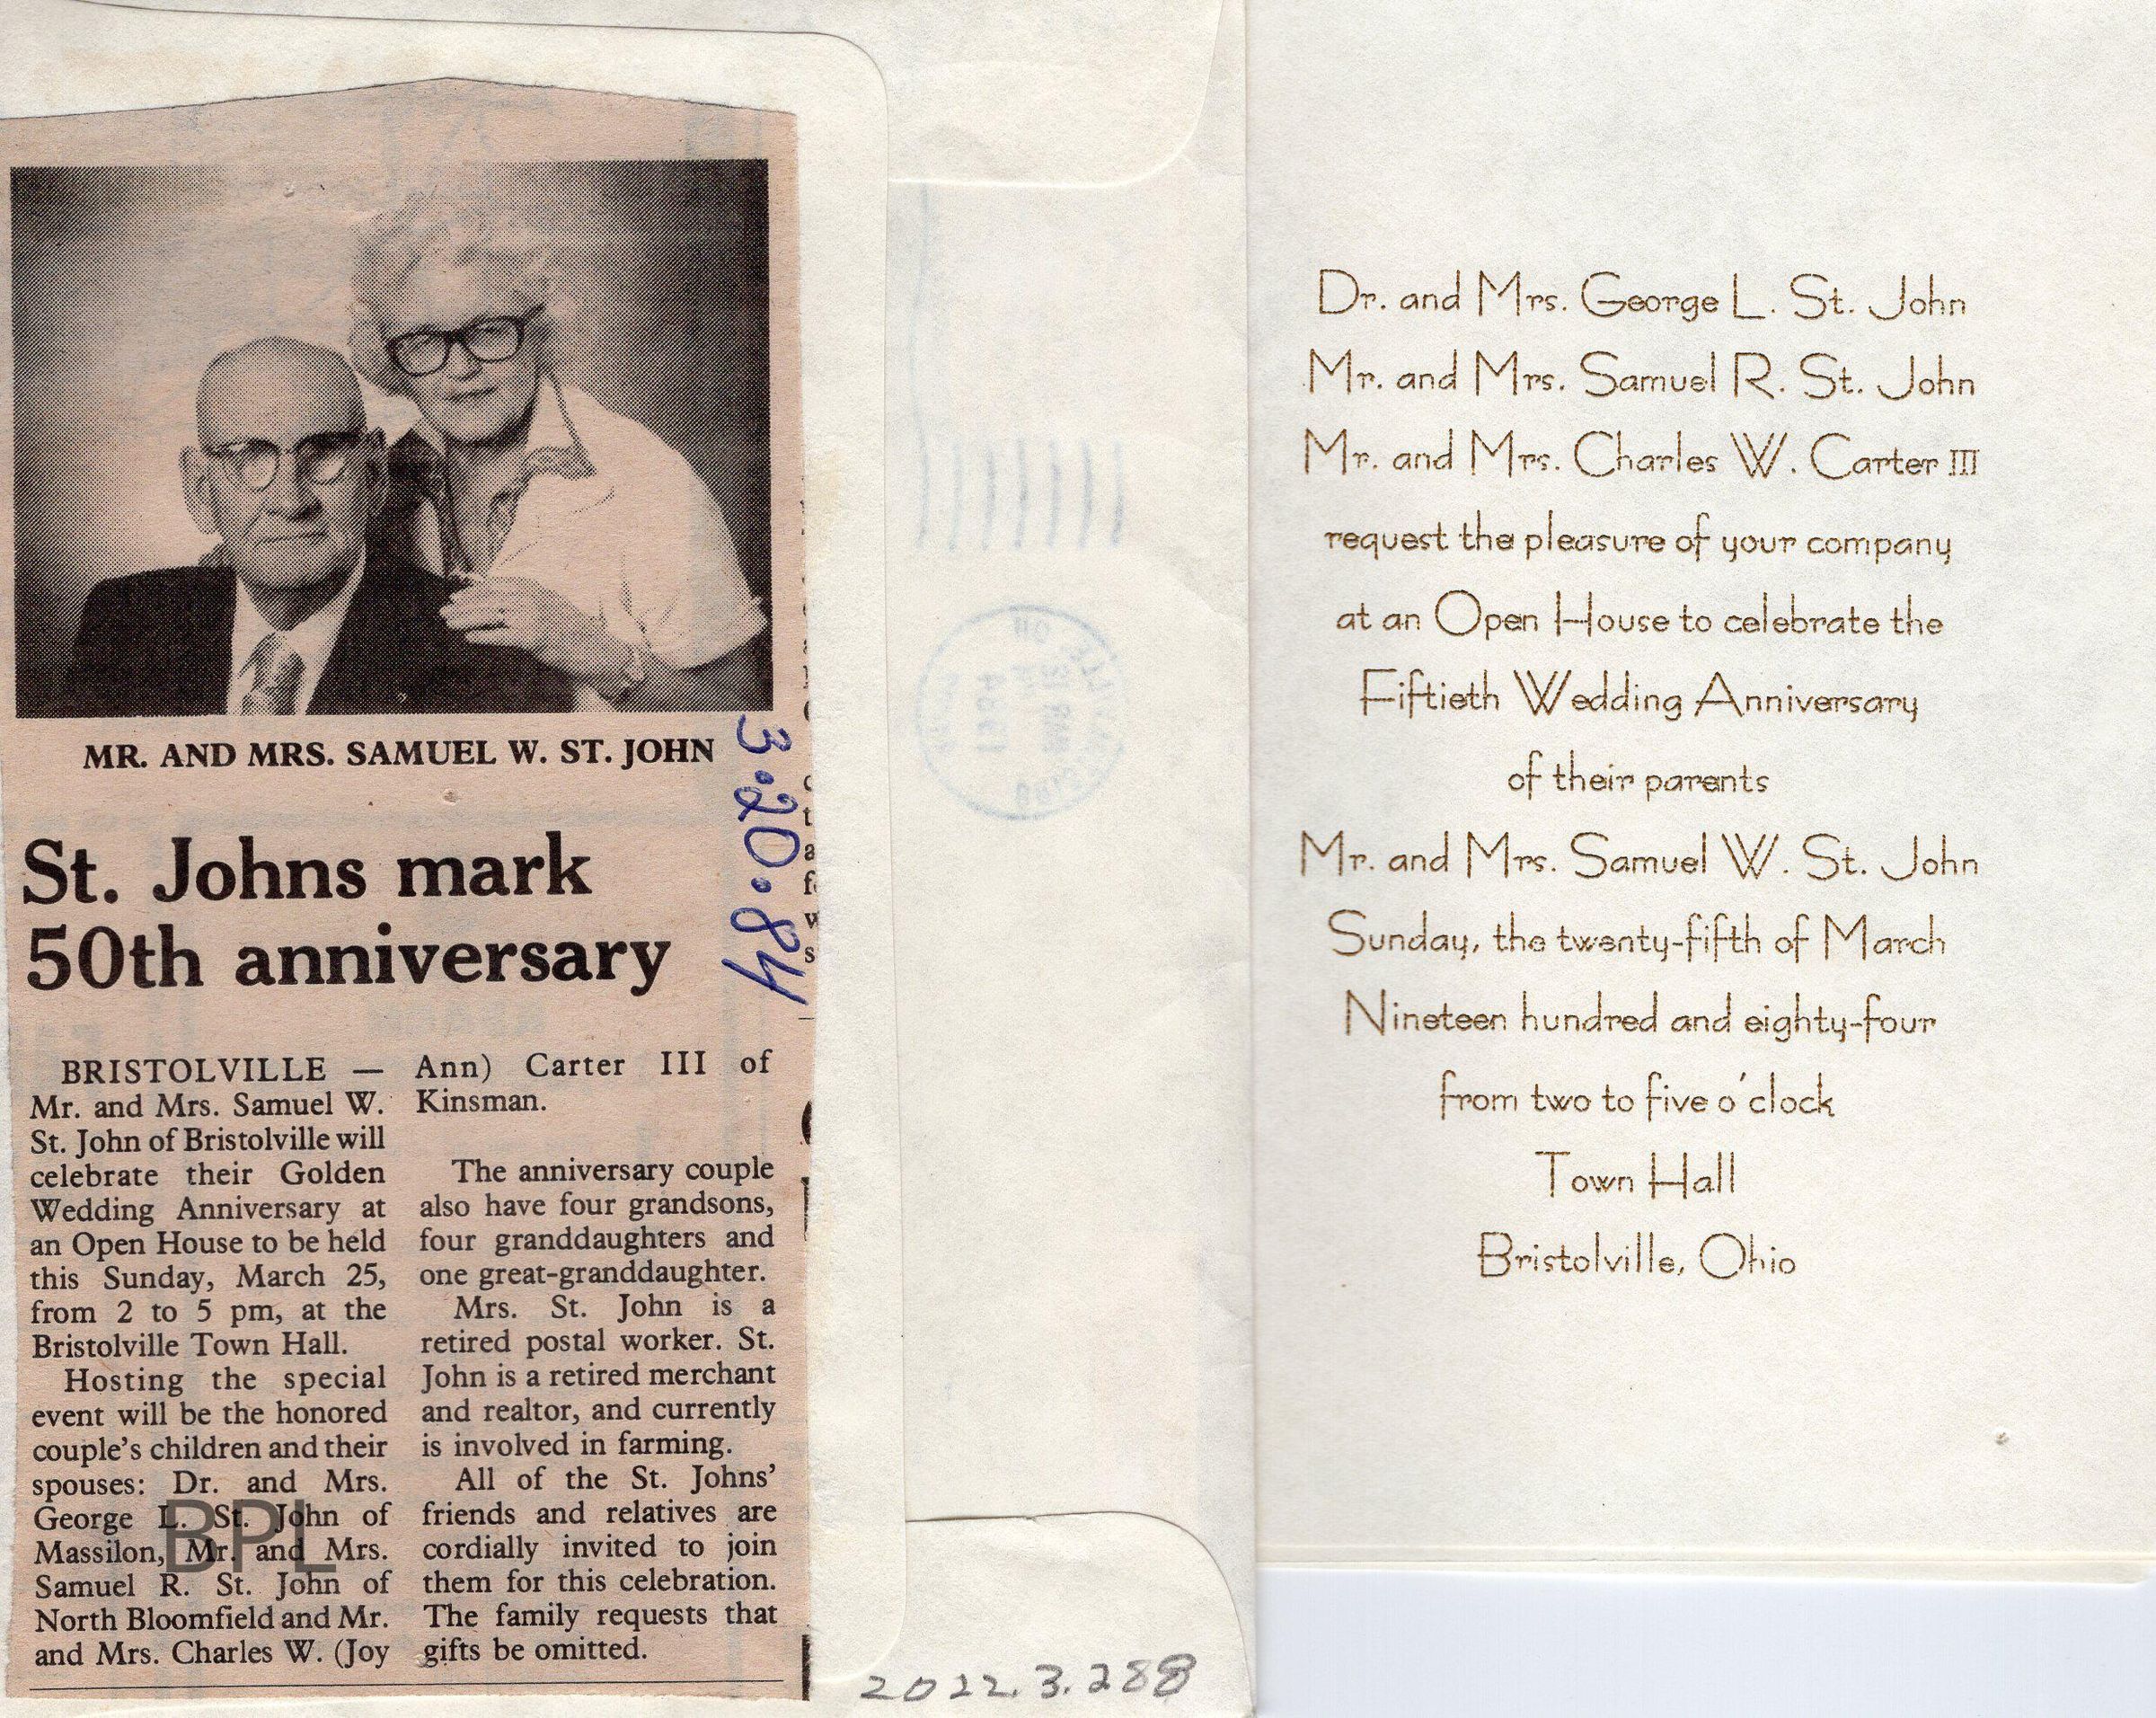 MR. AND MRS. SAMUEL W. ST. JOHN
3.20.84
St. Johns mark
50th anniversary
BRISTOLVILLE —
Mr. and Mrs. Samuel W.
St. John of Bristolville will
celebrate their Golden
Wedding Anniversary at
an Open House to be held
this Sunday, March 25,
from 2 to 5 pm, at the
Bristolville Town Hall.
Hosting the special
event will be the honored
couple's children and their
spouses: Dr. and Mrs.
George L. St. John of
Massilon, Mr. and Mrs.
Samuel R. St. John of
North Bloomfield and Mr.
and Mrs. Charles W. (Joy
Ann) Carter III of
Kinsman.
The anniversary couple
also have four grandsons,
four granddaughters and
one great-granddaughter.
Mrs. St. John is a
retired postal worker. St.
John is a retired merchant
and realtor, and currently
is involved in farming.
All of the St. Johns'
friends and relatives are
cordially invited to join
them for this celebration.
The family requests that
gifts be omitted.
BPL
2022.3.288
Dr. and Mrs. George L. St. John
Mr. and Mrs. Samuel R. St. John
Mr. and Mrs. Charles W. Carter III
request the pleasure of your company
at an Open House to celebrate the
Fiftieth Wedding Anniversary
of their parents
Mr. and Mrs. Samuel W. St. John
Sunday, the twenty-fifth of March
Nineteen hundred and eighty-four
from two to five o'clock
Town Hall
Bristolville, Ohio